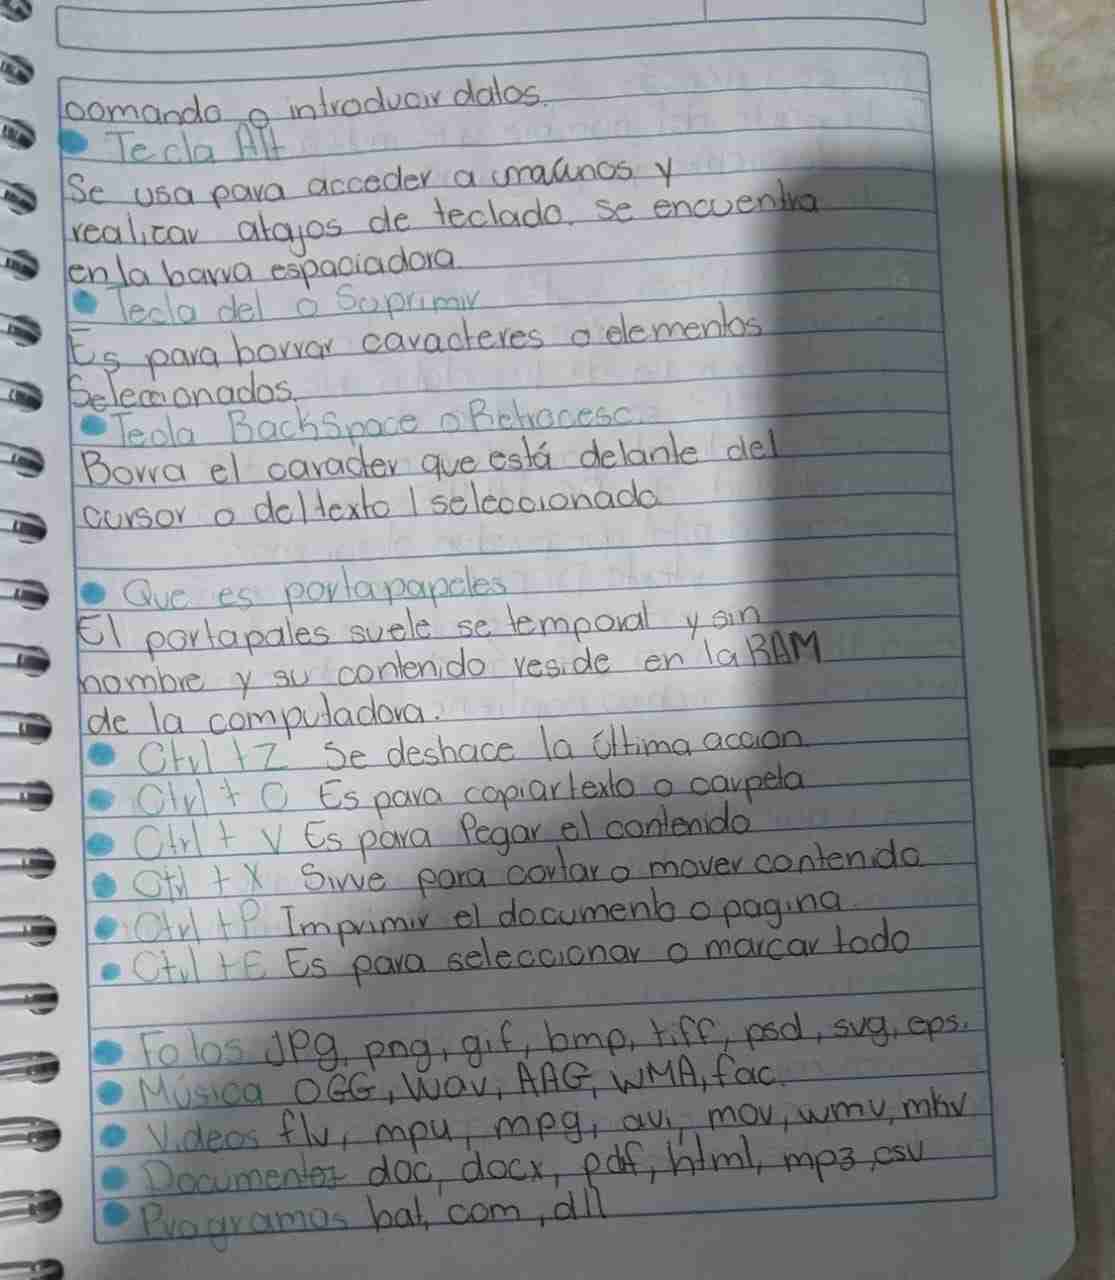 comando o introducir datos.
Tecla Alt
Se usa para acceder a y
realizar atajos de teclado. Se encuentra
en la barra espaciadora
Tecla del o Suprimir
Es para borrar caracteres o elementos
Seleccionados.
Tecla BackSpace o Retroceso.
Borra el caracter que está delante del
cursor o del texto / seleccionado
Que es portapapeles
El portapales suele se temporal y sin
nombre y su contenido reside en la RAM
de la computadora.
Ctrl + Z Se deshace la última accion
Ctrl + C Es para copiar texto o carpeta
Ctrl + V Es para Pegar el contenido
Ctrl + X Sirve para cortar o mover contenido
Ctrl + P Imprimir el documento o pagina
Ctrl + E Es para seleccionar o marcar todo
Fotos JPg, png, gif, bmp, tiff, psd, svg, eps.
Música OGG, Wav, AAG, WMA, fac.
Videos flv, mpu, mpg, avi, mov, wmv, mkv
Documentos doc, docx, pdf, html, mp3, csv
Programas bat, com, dll